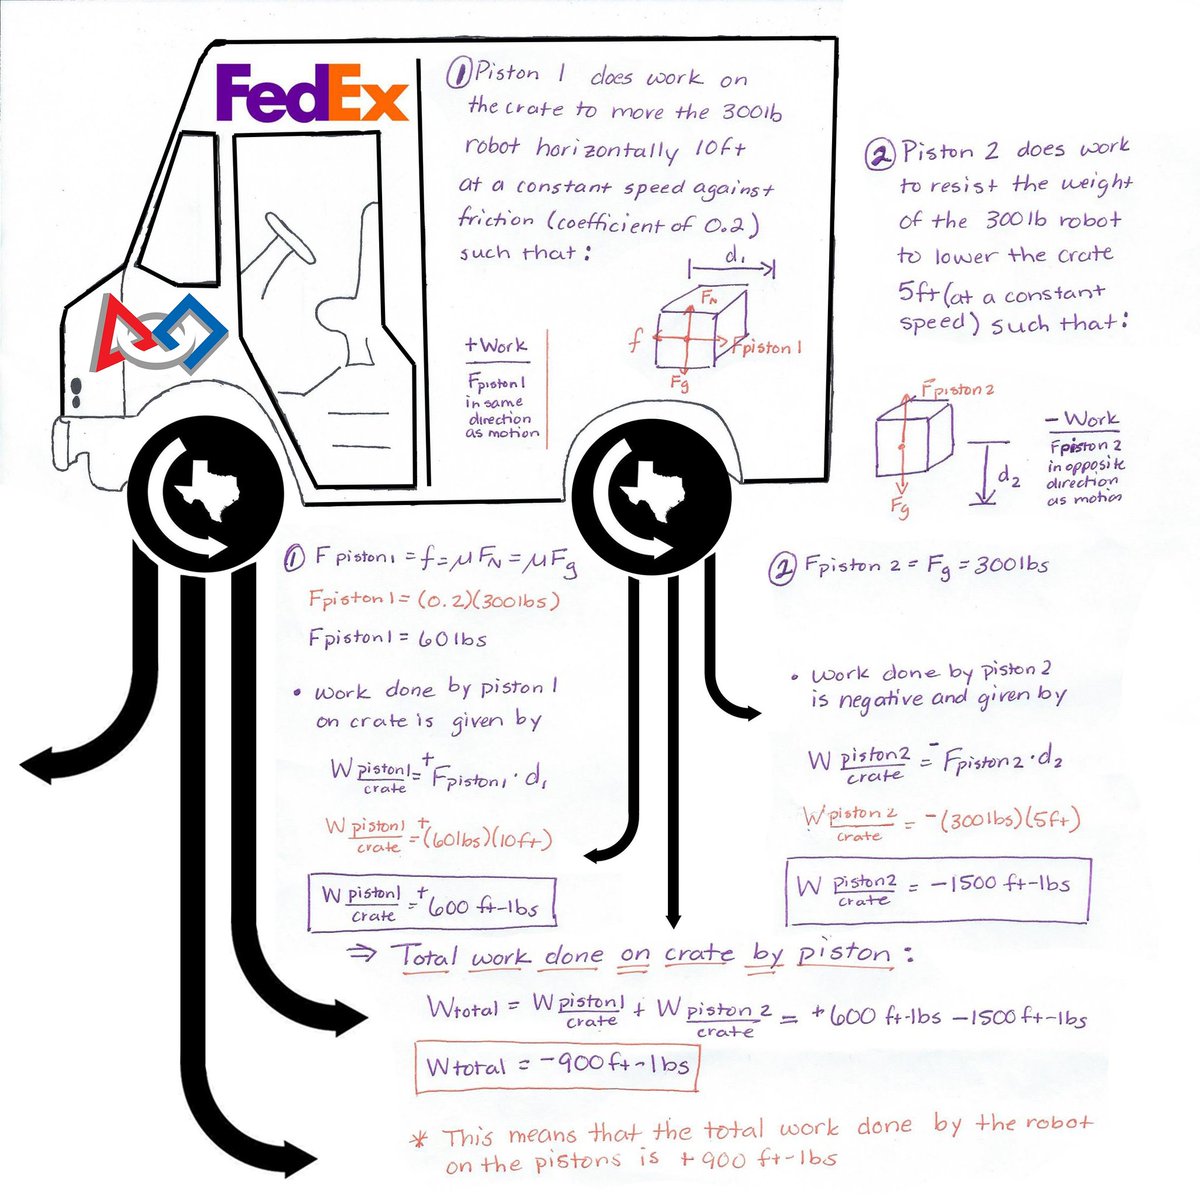 FedEx
① Piston 1 does work on
the crate to move the 300lb
robot horizontally 10ft
at a constant speed against
friction (coefficient of 0.2)
such that:
d₁
F_N
f
Fpiston 1
Fg
+ Work
Fpiston1
in same
direction
as motion
② Piston 2 does work
to resist the weight
of the 300lb robot
to lower the crate
5ft (at a constant
speed) such that:
Fpiston 2
Fg
d₂
- Work
Fpiston 2
in opposite
direction
as motion
① Fpiston1 = f = μF_N = μFg
Fpiston1 = (0.2)(300lbs)
Fpiston1 = 60lbs
• work done by piston 1
on crate is given by
W piston1/crate = +Fpiston1 · d₁
W piston1/crate = +(60lbs)(10ft)
W piston1/crate = +600 ft-lbs
② Fpiston 2 = Fg = 300lbs
• work done by piston 2
is negative and given by
W piston2/crate = -Fpiston2 · d₂
W piston2/crate = -(300lbs)(5ft)
W piston2/crate = -1500 ft-lbs
⇒ Total work done on crate by piston:
Wtotal = W piston1/crate + W piston 2/crate = +600 ft-lbs -1500 ft-lbs
Wtotal = -900 ft-lbs
* This means that the total work done by the robot
on the pistons is +900 ft-lbs